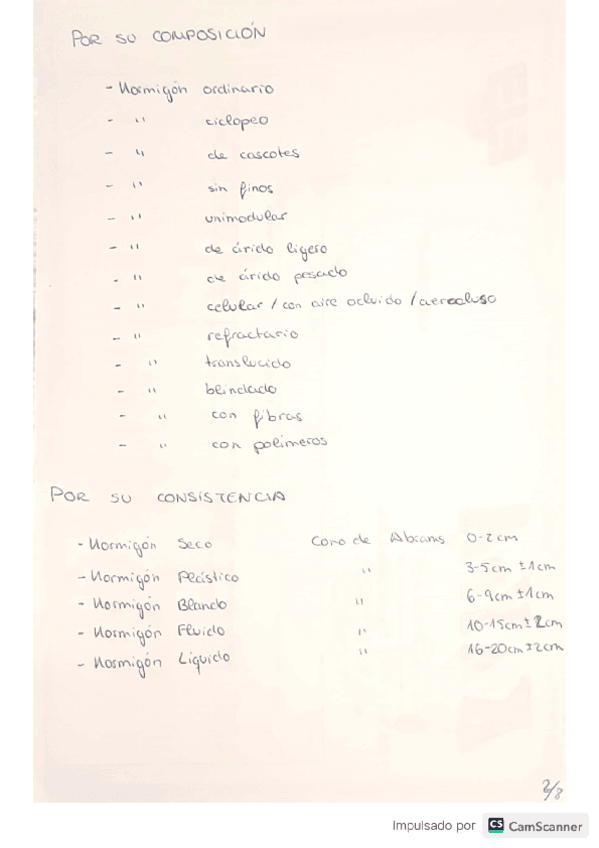 POR SU COMPOSICIÓN
- Hormigón ordinario
- " ciclopeo
- " de cascotes
- " sin finos
- " unimodular
- " de árido ligero
- " de árido pesado
- " celular / con aire ocluido / aerocluso
- " refractario
- " translucido
- " blindado
- " con fibras
- " con polimeros
POR SU CONSISTENCIA
- Hormigón Seco Cono de Abrams 0-2cm
- Hormigón Plástico " 3-5cm ±1cm
- Hormigón Blando " 6-9cm ±1cm
- Hormigón Fluido " 10-15cm ±2cm
- Hormigón Líquido " 16-20cm ±2cm
2/8
Impulsado por CS CamScanner